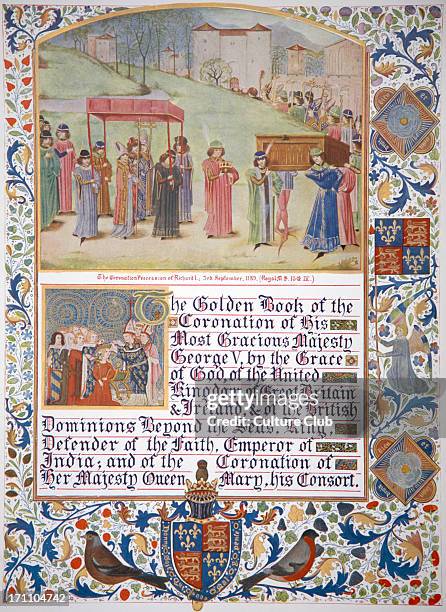 The Coronation Procession of Richard I., 3rd September, 1189, (Royal M.S. 15.E. IV.)
The Golden Book of the
Coronation of His
Most Gracious Majesty
George V, by the Grace
of God of the United
Kingdom of Great Britain
& Ireland, & of the British
Dominions Beyond Seas, King,
Defender of the Faith, Emperor of
India; and of the Coronation of
Her Majesty Queen Mary, his Consort.
gettyimages
Credit: Culture Club
171104742